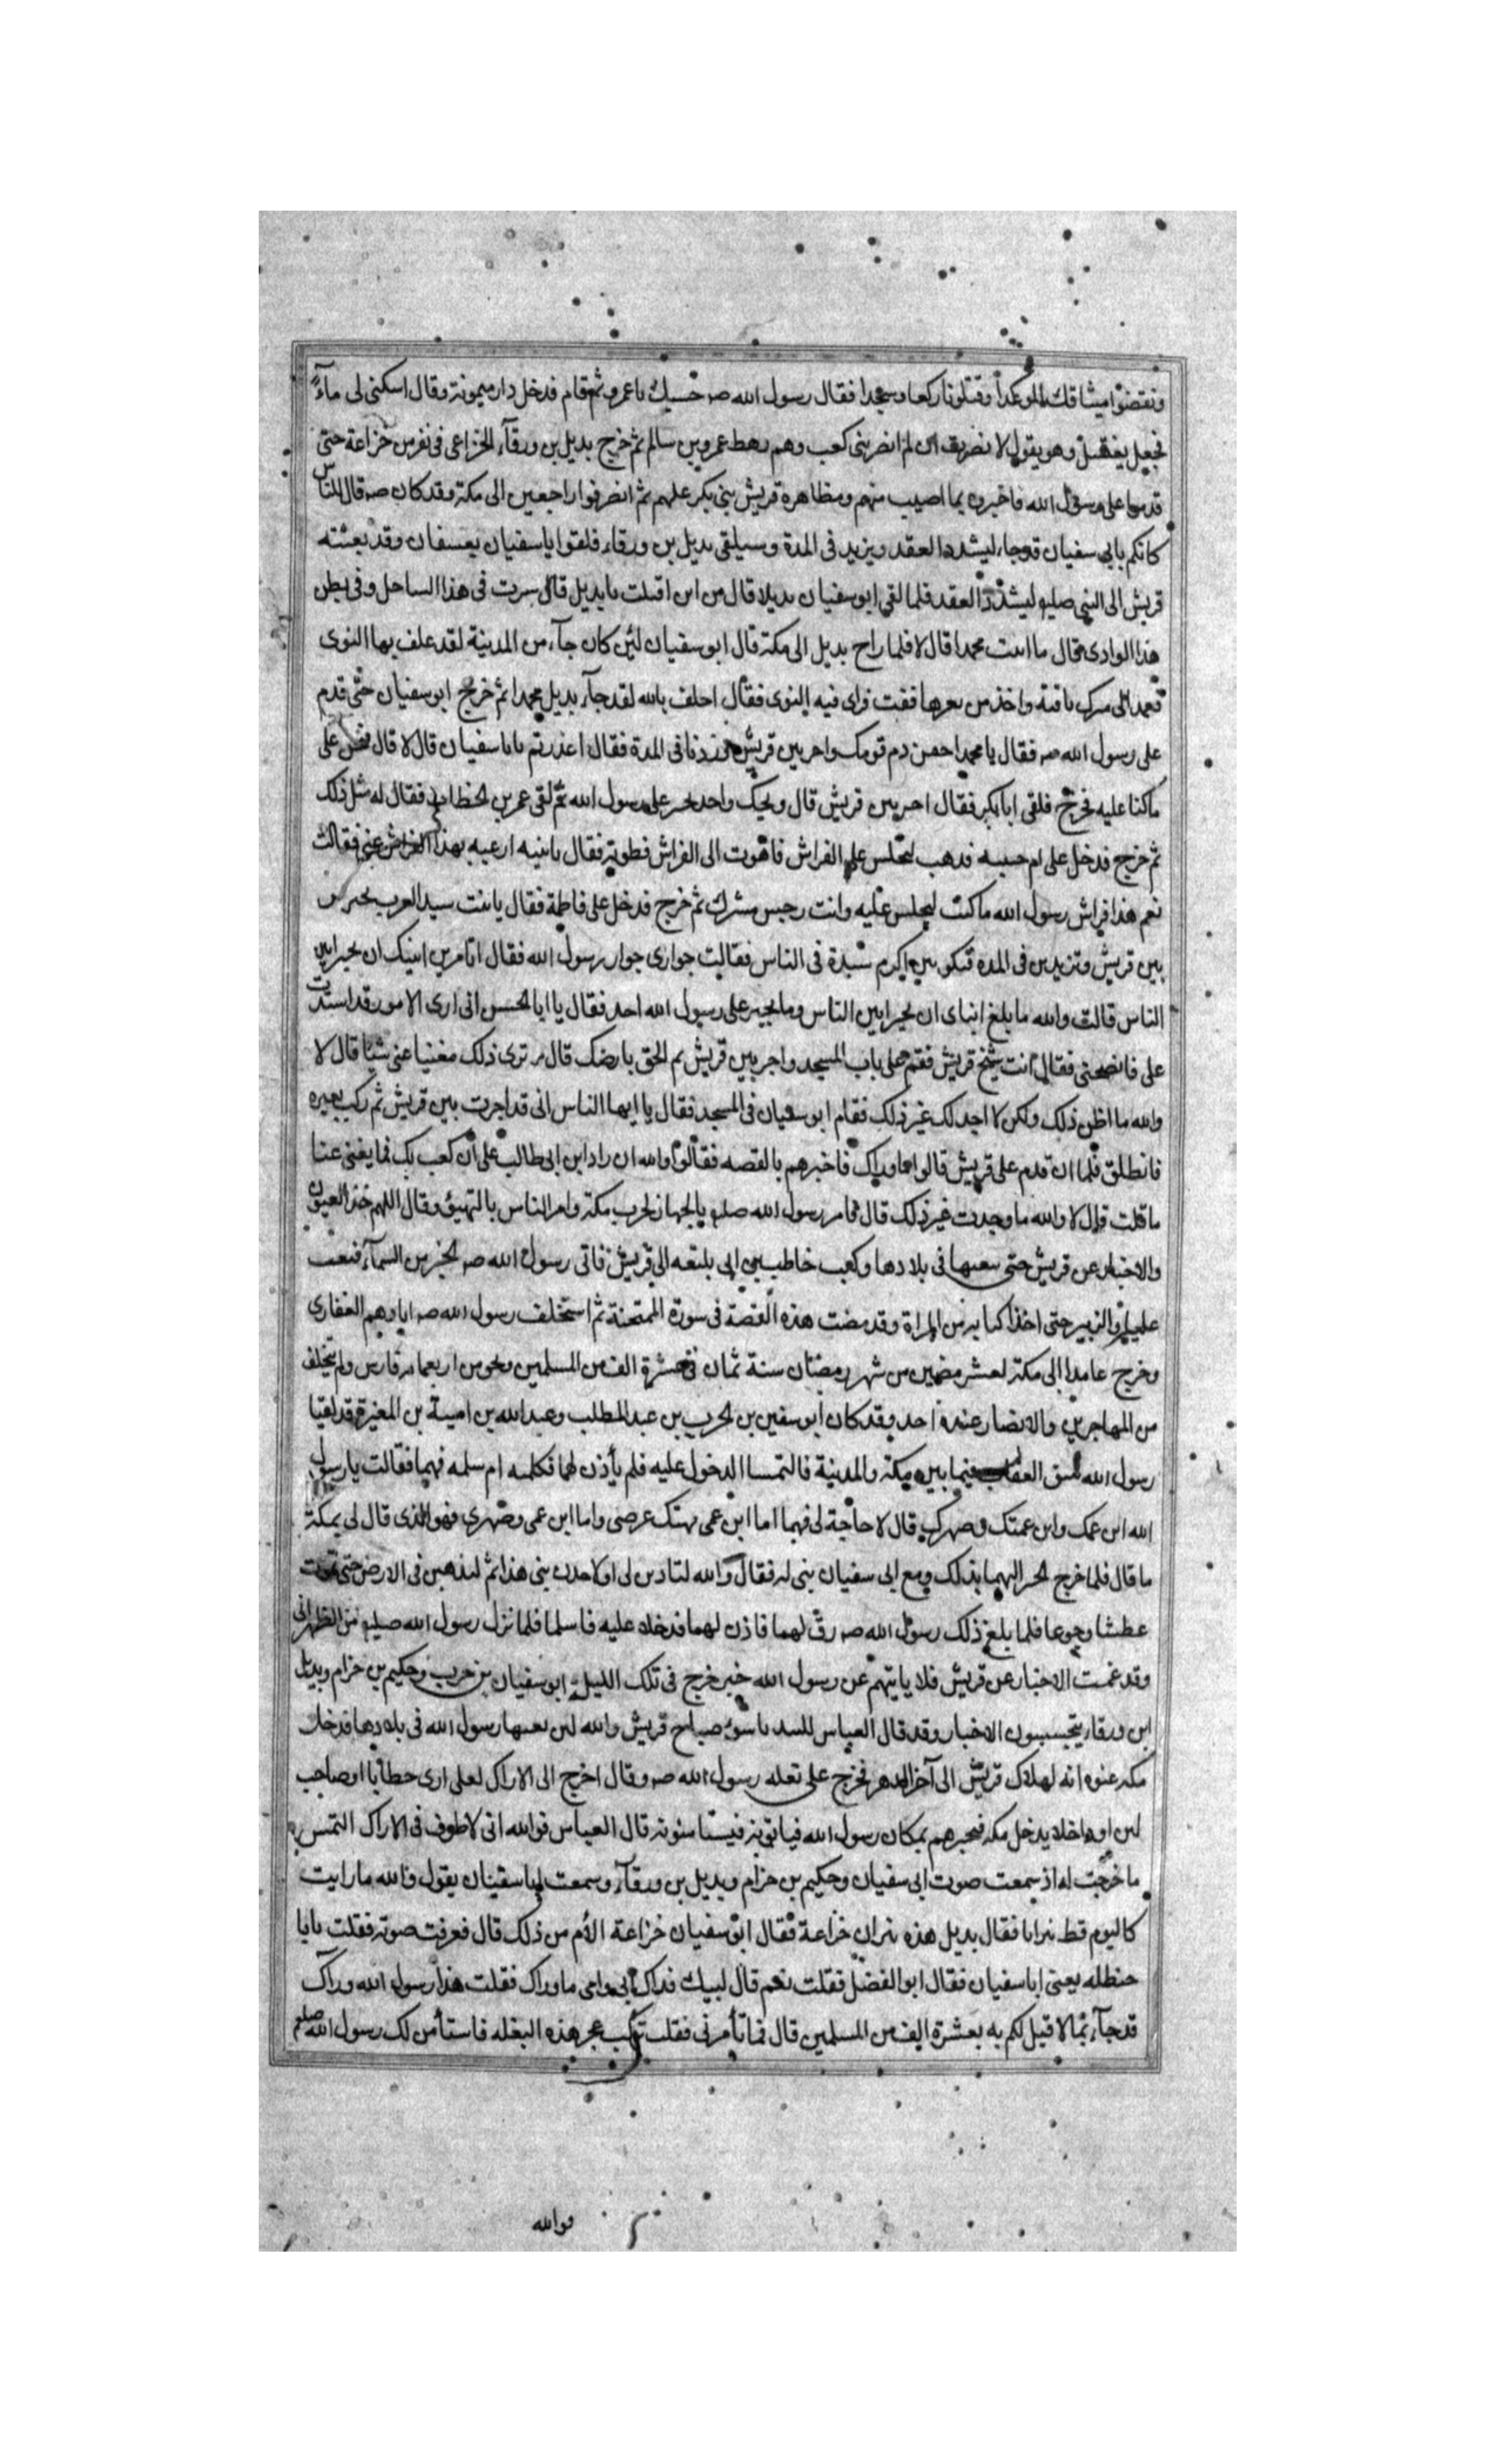 ونقضوا ميثاقك الموكدا وقتلونا ركعا وسجدا فقال رسول الله صه حسبك يا عمرو ثم قام فدخل دار ميمونة وقال اسكبى لى ماءً
فجعل يغتسل وهو يقول لا نصرت ان لم انصر بنى كعب وهم رهط عمرو بن سالم ثم خرج بديل بن ورقآء الخزاعى فى نفر من خزاعة حتى
قدموا على رسول الله فاخبروه بما اصيب منهم ومظاهرة قريش بنى بكر عليهم ثم انصرفوا راجعين الى مكة وقد كان صه قال للناس
كانكم بابى سفيان قد جاء ليشدد العقد ويزيد فى المدة وسيلقى بديل بن ورقاء فلقوا ابا سفيان بعسفان وقد بعثته
قريش الى النبى صلم ليشدد العقد فلما لقى ابو سفيان بديلا قال من اين اقبلت يا بديل قال سرت فى هذا الساحل وفى بطن
هذا الوادى قال ما اتيت محمدا قال لا فلما راح بديل الى مكة قال ابو سفيان لئن كان جآء من المدينة لقد علف بها النوى
فعمد الى مبرك ناقته واخذ من بعرها ففت فراى فيه النوى فقال احلف بالله لقد جآء بديل محمدا ثم خرج ابو سفيان حتى قدم
على رسول الله صه فقال يا محمد احقن دم قومك واجر بين قريش وزدنا فى المدة فقال اغدرتم يا ابا سفيان قال لا قال فنحن على
ما كنا عليه فخرج فلقى ابا بكر فقال اجر بين قريش قال ويحك واحد يجير على رسول الله ثم لقى عمر بن الخطاب فقال له مثل ذلك
ثم خرج فدخل على ام حبيبه فذهب ليجلس على الفراش فاهوت الى الفراش فطوته فقال يا بنيه ارغبه بهذا الفراش عنى فقالت
نعم هذا فراش رسول الله ما كنت لتجلس عليه وانت رجس مشرك ثم خرج فدخل على فاطمة فقال يا بنت سيد العرب تجيرين
بين قريش وتزيدين فى المدة فتكونين اكرم سيدة فى الناس فقالت جوارى جوار رسول الله فقال اتامرين ابنيك ان يجيرا بين
الناس قالت والله ما بلغ ابناى ان يجيرا بين الناس وما يجير على رسول الله احد فقال يا ابا الحسن انى ارى الامور قد اشتدت
على فانصحنى فقال انت شيخ قريش فقم على باب المسجد واجر بين قريش ثم الحق بارضك قال وترى ذلك مغنيا عنى شيئا قال لا
والله ما اظن ذلك ولكن لا اجد لك غير ذلك فقام ابو سفيان فى المسجد فقال يا ايها الناس انى قد اجرت بين قريش ثم ركب بعيره
فانطلق فلما ان قدم على قريش قالوا ما وراك فاخبرهم بالقصه فقالوا والله ان زاد ابن ابى طالب على ان لعب بك فما يغنى عنا
ما قلت قال لا والله ما وجدت غير ذلك قال فامر رسول الله صلم بالجهاز لحرب مكة وامر الناس بالتهيئ وقال اللهم خذ العيون
والاخبار عن قريش حتى نبغتها فى بلادها وكتب حاطب بن ابى بلتعه الى قريش فاتى رسول الله صه الخبر من السمآء فبعث
عليا والزبير حتى اخذا كتابه من المراة وقد مضت هذه القصة فى سورة الممتحنة ثم استخلف رسول الله صه ابا رهم الغفارى
وخرج عامدا الى مكة لعشر مضين من شهر رمضان سنة ثمان فى عشرة الف من المسلمين ونحو من اربعمائة فارس ولم يتخلف
من المهاجرين والانصار عنه احد وقد كان ابو سفين بن الحرب بن عبد المطلب وعبد الله بن امية بن المغيرة قد لقيا
رسول الله بنيق العقاب فيما بين مكة والمدينة فالتمسا الدخول عليه فلم يأذن لهما فكلمته ام سلمه فيهما فقالت يا رسول
الله ابن عمك وابن عمتك وصهرك قال لا حاجة لى فيهما اما ابن عمى فهتك عرضى واما ابن عمتى وصهرى فهو الذى قال لى بمكة
ما قال فلما خرج الخبر اليهما بذلك ومع ابى سفيان بنى له فقال والله لتاذنن لى او لاخذن بيد بنى هذا ثم لنذهبن فى الارض حتى نموت
عطشا وجوعا فلما بلغ ذلك رسول الله صه رق لهما فاذن لهما فدخلا عليه فاسلما فلما نزل رسول الله صلم مر الظهران
وقد غمت الاخبار عن قريش فلا ياتيهم عن رسول الله خبر خرج فى تلك الليلة ابو سفيان بن حرب وحكيم بن حزام وبديل
ابن ورقاء يتجسسون الاخبار وقد قال العباس للسد يا سوء صباح قريش والله لئن بغتها رسول الله فى بلادها فدخل
مكه عنوه انه لهلاك قريش الى آخر الدهر فخرج على بغلة رسول الله صه وقال اخرج الى الاراك لعلى ارى حطابا او صاحب
لبن او داخلا يدخل مكه فيخبرهم بمكان رسول الله فياتونه فيستامنونه قال العباس فوالله انى لاطوف فى الاراك التمس
ما خرجت له اذ سمعت صوت ابى سفيان وحكيم بن حزام وبديل بن ورقآء وسمعت ابا سفيان يقول والله ما رايت
كاليوم قط نيرانا فقال بديل هذه نيران خزاعة فقال ابو سفيان خزاعة الأم من ذلك قال فعرفت صوته فقلت يا ابا
حنظله يعنى ابا سفيان فقال ابو الفضل فقلت نعم قال لبيك فداك ابى وامى ما وراك فقلت هذا رسول الله وراك
قد جآء بما لا قبل لكم به بعشرة الف من المسلمين قال فما تأمرنى فقلت تركب عجز هذه البغله فاستأمن لك رسول الله صلم
فوالله